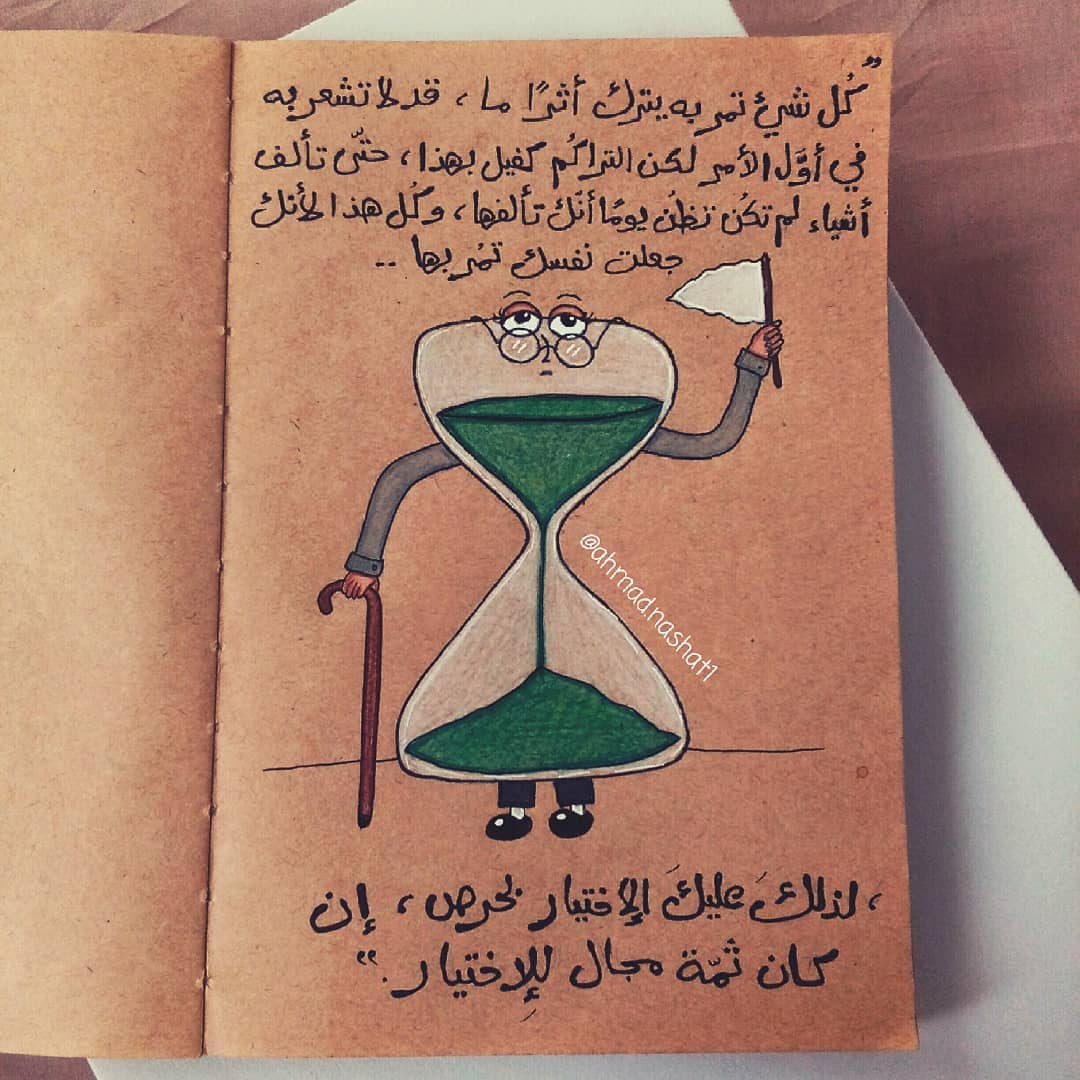 ”كُل شيئ تمر به يترك أثرًا ما، قد لا تشعر به
في أوَّل الأمر لكن التراكُم كفيل بهذا، حتّى تألف
أشياء لم تكُن تظنُ يومًا أنّك تألفها، وكُل هذا لأنك
جعلت نفسك تمُر بها ..
@ahmad.nashat1
، لذلكَ عليكَ الإختيار بحرص، إن
كان ثمّة مجال للإختيار.“